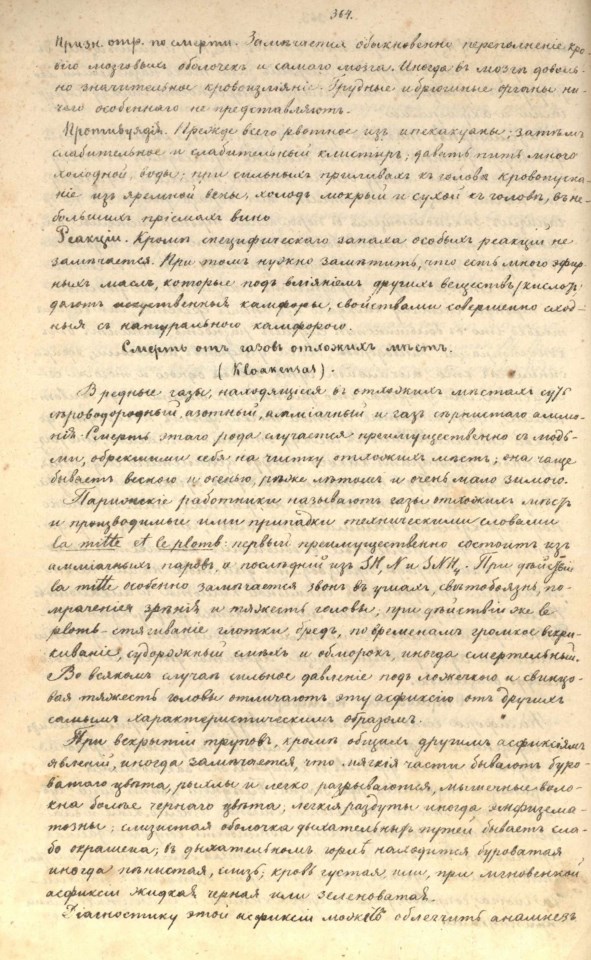 364.
Призн. отр. по смерти. Замѣчается обыкновенно переполненіе кро-
вью мозговыхъ оболочекъ и самаго мозга. Иногда въ мозгу доволь-
но значительное кровоизліяніе. Грудные и брюшные органы ни-
чего особеннаго не представляютъ.
Противуядія. Прежде всего рвотное изъ ипекакуаны; затѣмъ
слабительное и слабительный клистиръ; давать пить много
холодной воды; при сильныхъ приливахъ къ головѣ кровопуска-
ніе изъ яремной вены, холодъ мокрый и сухой къ головѣ, въ не-
большихъ пріемахъ вино
Реакціи. Кромѣ специфическаго запаха особыхъ реакцій не
замѣчается. При томъ нужно замѣтить, что есть много эфир-
ныхъ маслъ, которые подъ вліяніемъ другихъ веществъ (кислотъ)
даютъ искуственныя камфоры, свойствами совершенно сход-
ныя съ натуральною камфорою.
Смерть отъ газовъ отхожихъ мѣстъ.
(Kloakengas).
Вредные газы, находящіеся въ отхожихъ мѣстахъ суть
сѣрводородный, азотный, амміачный и газъ сѣрнистаго аммо-
нія. Смерть этаго рода случается преимущественно съ людь-
ми, обрекшими себя на чистку отхожихъ мѣстъ; она чаще
бываетъ весною и осенью, рѣже лѣтомъ и очень мало зимою.
Парижскіе работники называютъ газы отхожихъ мѣстъ
и производимые ими припадки техническими словами
la mitte et le plomb: первый преимущественно состоитъ изъ
амміачныхъ паровъ, а послѣдній изъ SH, N и SNH4. При дѣйствіи
la mitte особенно замѣчается звонъ въ ушахъ, свѣтобоязнь, по-
мраченіе зрѣнія и тяжесть головы; при дѣйствіи же le
plomb - стягиваніе глотки, бредъ, по временамъ громкое вскри-
киваніе, судорожный смѣхъ и обморокъ, иногда смертельный.
Во всякомъ случаѣ сильное давленіе подъ ложечкою и свинцо-
вая тяжесть головы отличаютъ эту асфиксію отъ другихъ
самымъ характеристическимъ образомъ.
При вскрытіи труповъ, кромѣ общихъ другимъ асфиксіямъ
явленій, иногда замѣчается, что мягкія части бываютъ буро-
ватаго цвѣта, рыхлы и легко разрываются, мышечные воло-
кна болѣе чернаго цвѣта; легкія раздуты иногда эмфизема-
тозны; слизистая оболочка дыхательныхъ путей бываетъ сла-
бо окрашена; въ дыхательномъ горлѣ находится буроватая
иногда пѣнистая, слизь; кровь густая или, при мгновенной
асфиксіи жидкая черная или зеленоватая.
Діагностику этой асфиксіи можетъ облегчить анамнезъ